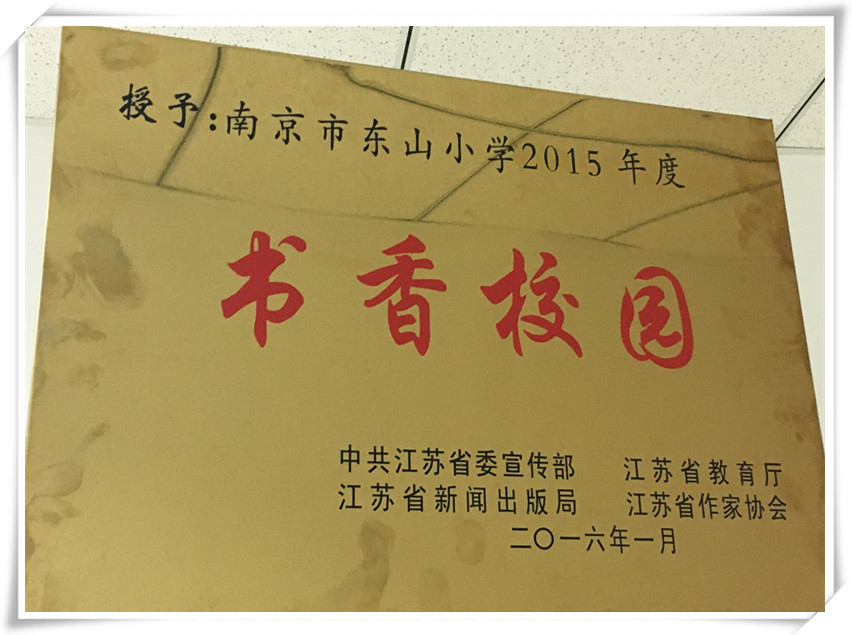 授予:南京市东山小学2015年度
书香校园
中共江苏省委宣传部 江苏省教育厅
江苏省新闻出版局 江苏省作家协会
二〇一六年一月